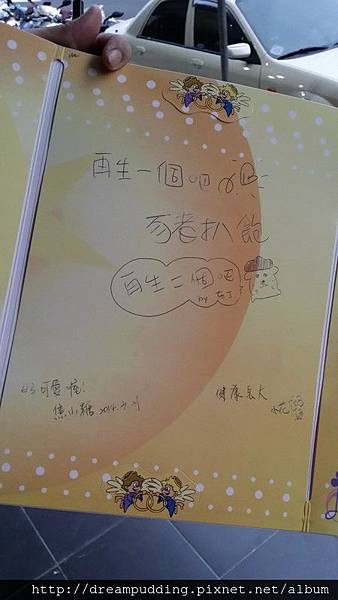 再生一個吧
再生二個吧
by 布丁
好可愛喔!
焦小糖 2014.
健康長大
http://dreampudding.pixnet.net/album